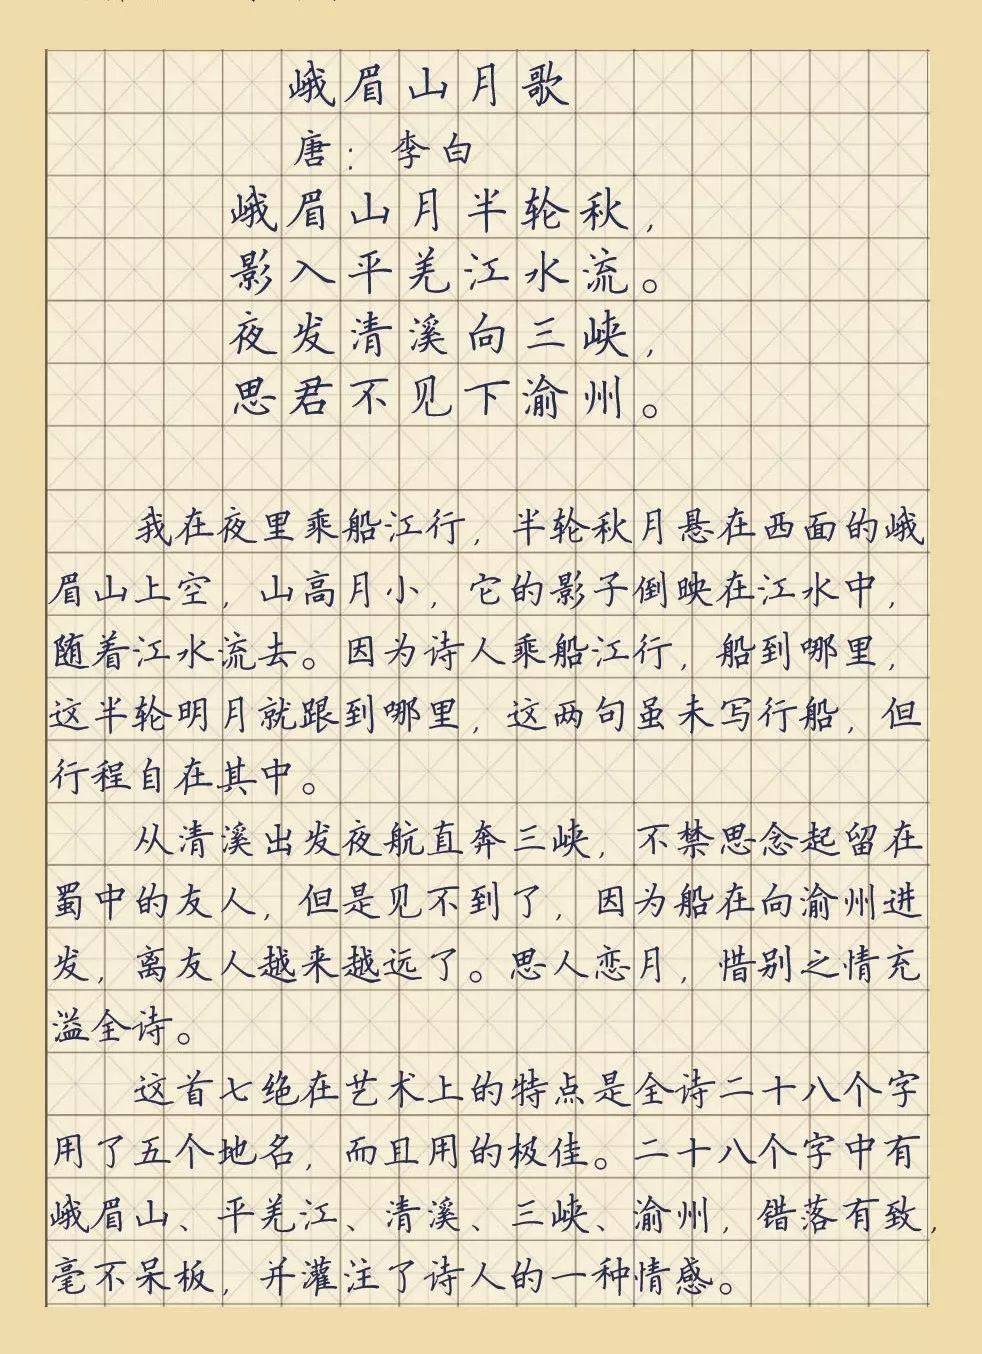 峨眉山月歌
唐：李白
峨眉山月半轮秋，
影入平羌江水流。
夜发清溪向三峡，
思君不见下渝州。
我在夜里乘船江行，半轮秋月悬在西面的峨
眉山上空，山高月小，它的影子倒映在江水中，
随着江水流去。因为诗人乘船江行，船到哪里，
这半轮明月就跟到哪里，这两句虽未写行船，但
行程自在其中。
从清溪出发夜航直奔三峡，不禁思念起留在
蜀中的友人，但是见不到了，因为船在向渝州进
发，离友人越来越远了。思人恋月，惜别之情充
溢全诗。
这首七绝在艺术上的特点是全诗二十八个字
用了五个地名，而且用的极佳。二十八个字中有
峨眉山、平羌江、清溪、三峡、渝州，错落有致，
毫不呆板，并灌注了诗人的一种情感。